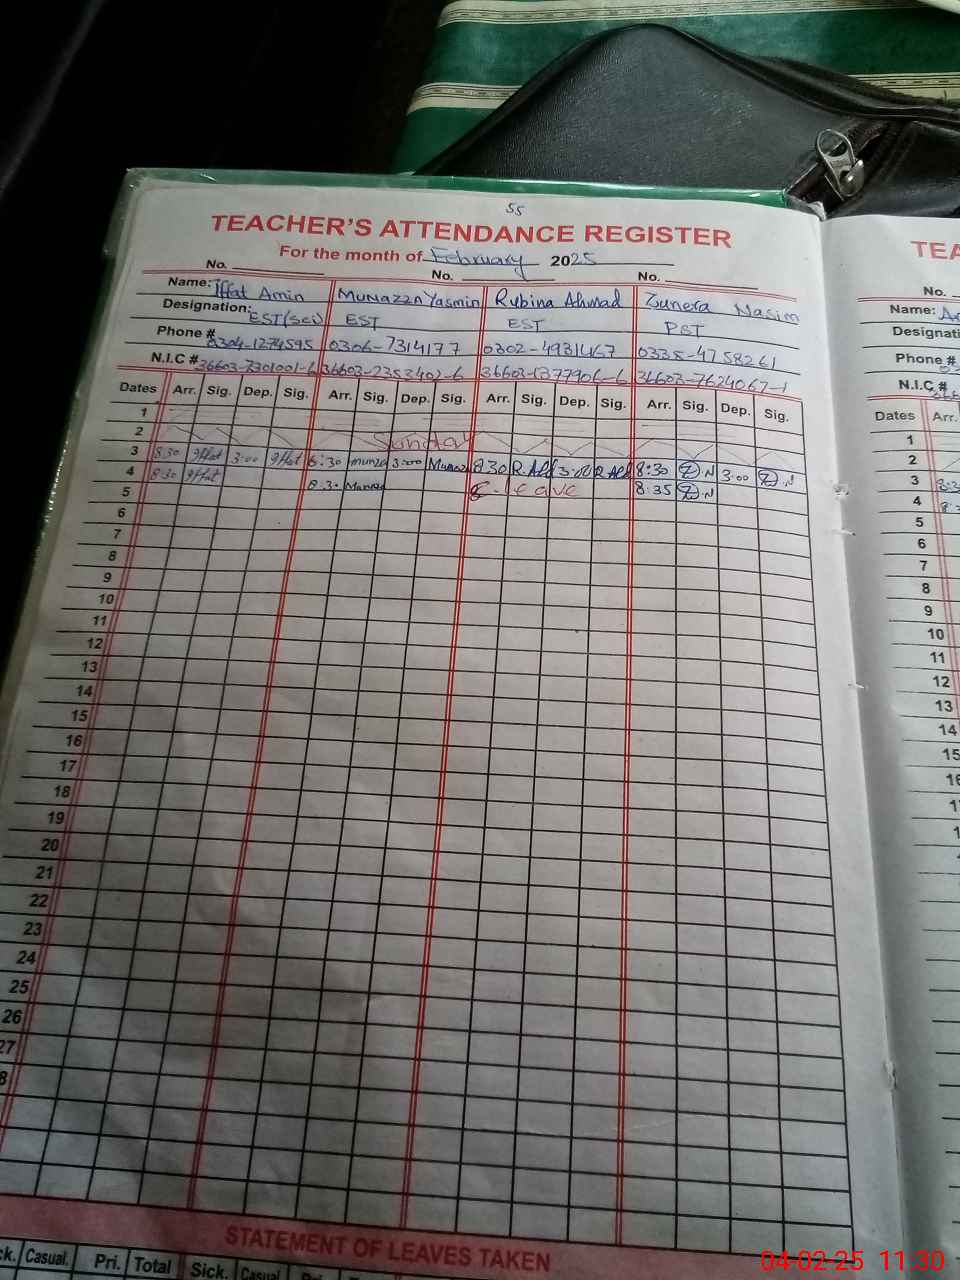 55
TEACHER'S ATTENDANCE REGISTER TEA
For the month of February 2025
No. No. No. No.
Name: Iffat Amin Mumazza Yasmin Rubina Ahmad Zunera Nasim Name:
Designation: EST(sci) EST EST PST
Phone # 0304-1274595 0306-7314177 0302-4931467 0335-4758261 Phone #
N.I.C # 36603-7301001-6 36603-2353402-6 36603-1377906-6 36603-7624067-1 N.I.C #
Dates Arr. Sig. Dep. Sig. Arr. Sig. Dep. Sig. Arr. Sig. Dep. Sig. Arr. Sig. Dep. Sig. Dates Arr.
1 1
2 Sunday 2
3 8:30 Iffat 3:00 Iffat 8:30 3:00 8:30 3:00 8:30 3:00 3
4 8:30 Iffat 8:30 leave 8:35 4
5 5
6 6
7 7
8 8
9 9
10 10
11 11
12 12
13 13
14 14
15 15
16
17
18
19
20
21
22
23
24
25
26
27
STATEMENT OF LEAVES TAKEN
Casual. Pri. Total Sick. Casual
04-02-25 11:30